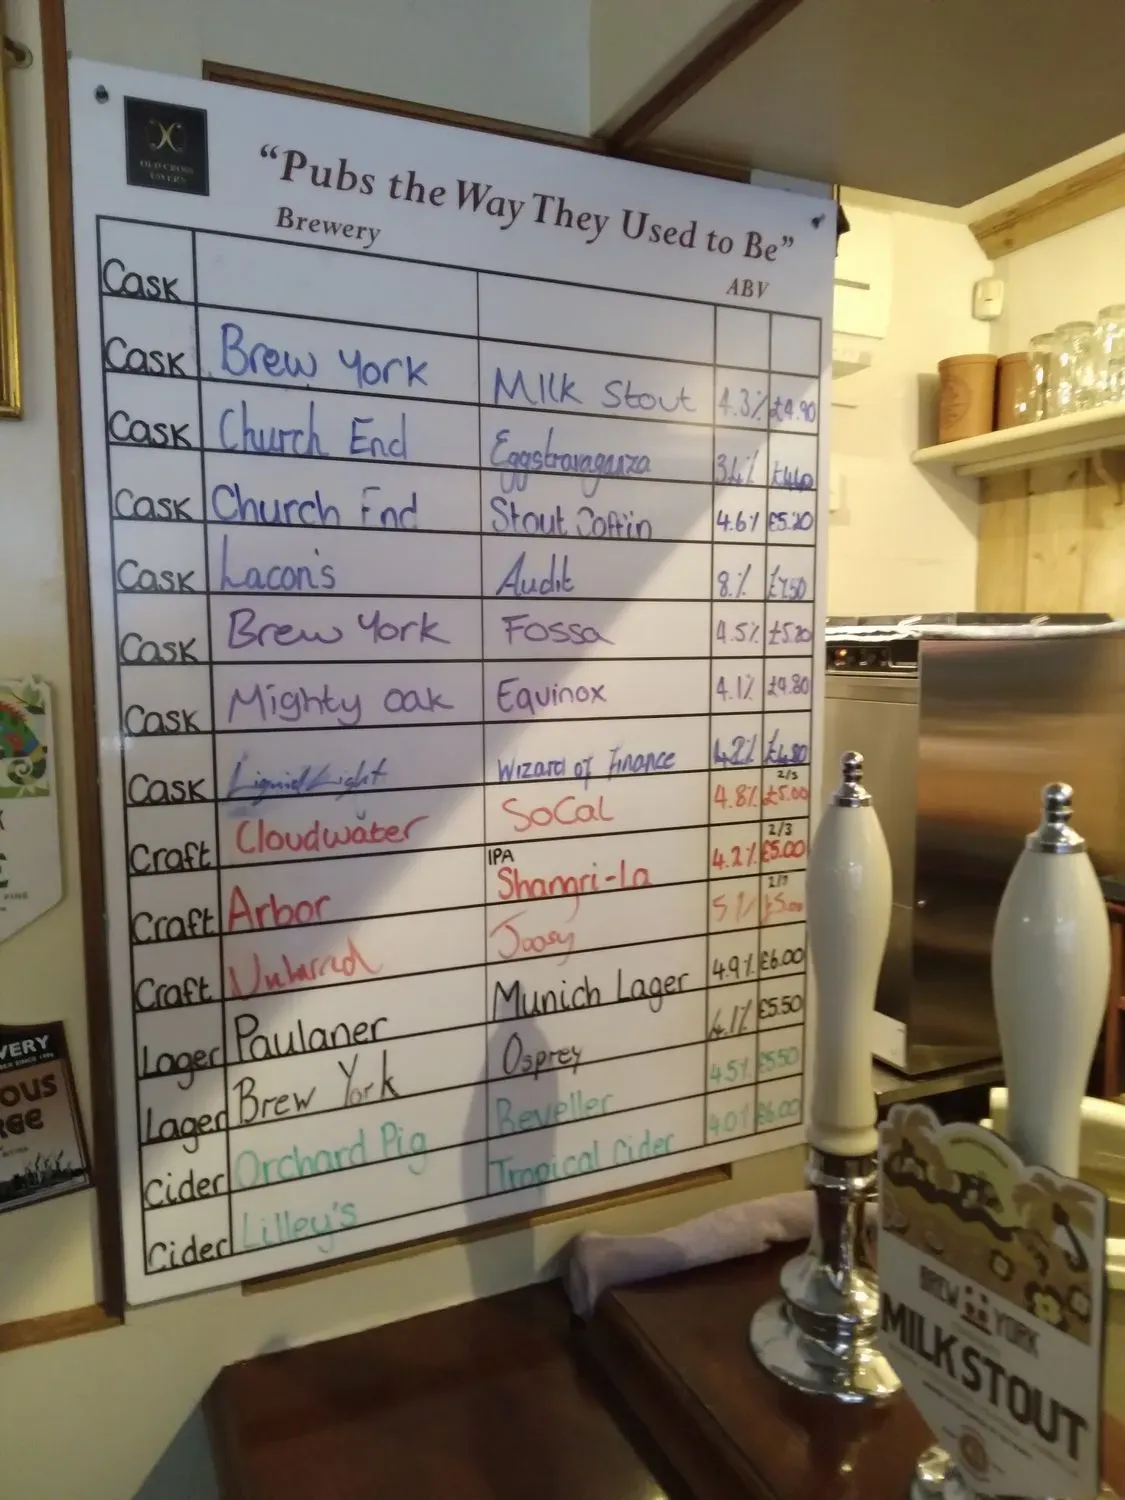 OLD CROSS
TAVERN
"Pubs the Way They Used to Be"
Brewery ABV
Cask
Cask Brew York Milk Stout 4.3% £4.90
Cask Church End Eggstravaganza £4.40
Cask Church End Stout Coffin 4.6% £5.20
Cask Lacon's Audit 8% £7.50
Cask Brew York Fossa 4.5% £5.20
Cask Mighty Oak Equinox 4.1% £4.80
Cask Liquid Light Wizard of Finance 4.2% £4.80
Craft Cloudwater SoCal 4.8% 2/3 £5.00
Craft Arbor IPA Shangri-la 4.2% 2/3 £5.00
Craft Unbarred Joosy 5% 2/3 £5.00
Lager Paulaner Munich Lager 4.9% £6.00
Lager Brew York Osprey 4.1% £5.50
Cider Orchard Pig Reveller 4.5% £5.50
Cider Lilley's Tropical Cider 4.0% £6.00
BREW YORK
MILK STOUT